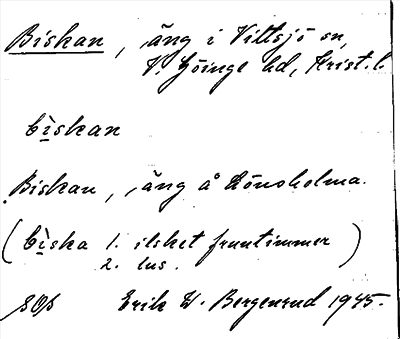 Biskan, äng i Vittsjö sn,
V. Göinge hd, Krist. l.
bìskan
Biskan, äng å Lönsholma.
(bìska 1. ilsket fruntimmer)
2. lus.
SOA Erik W. Bergenrud 1945.